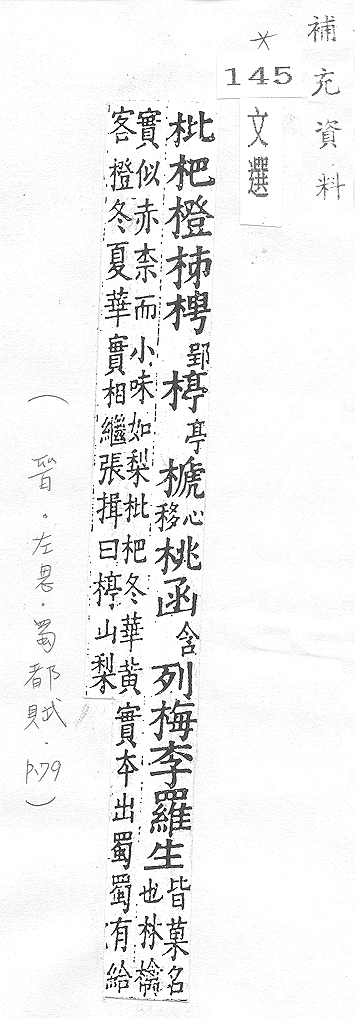 補充資料
*
145
文選
枇杷橙柹梬郢楟亭榹心移桃函含列梅李羅生皆菓名
實似赤柰而小味如梨枇杷冬華黃實本出蜀蜀有給
客橙冬夏華實相繼張揖曰楟山梨
也林檎
(晉。左思.蜀都賦.p.79)